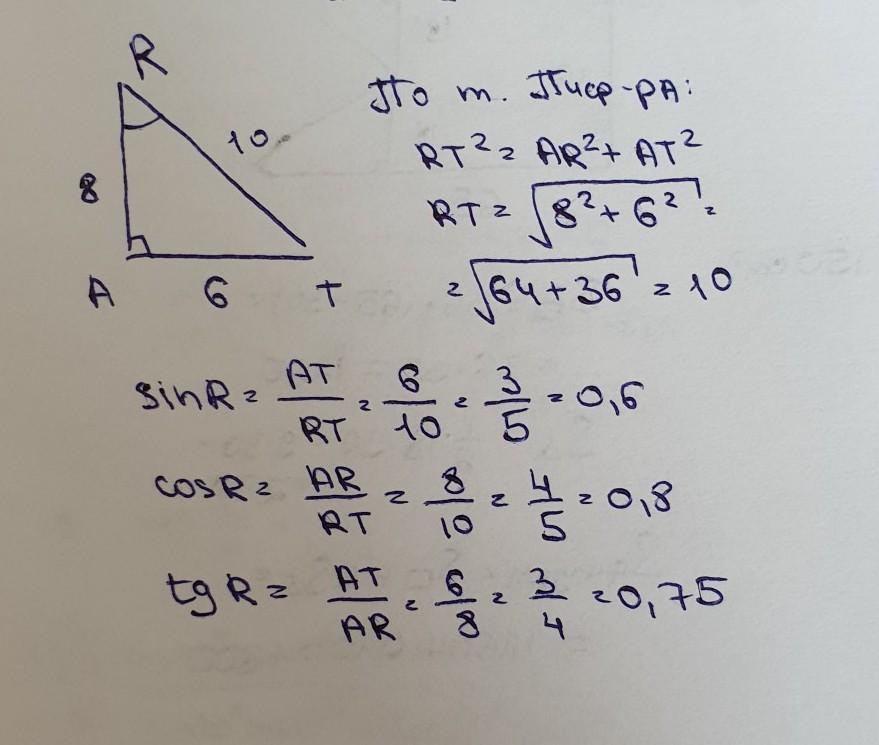 R
10
8
A 6 T
По т. Пиф-ра:
RT² = AR² + AT²
RT = √8² + 6² =
= √64 + 36 = 10
sinR = AT/RT = 6/10 = 3/5 = 0,6
cosR = AR/RT = 8/10 = 4/5 = 0,8
tgR = AT/AR = 6/8 = 3/4 = 0,75